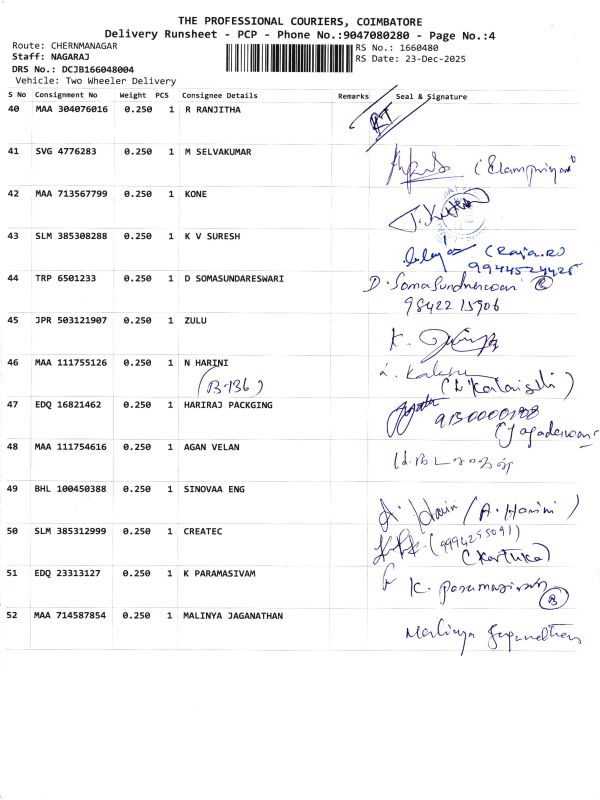 THE PROFESSIONAL COURIERS, COIMBATORE
Delivery Runsheet - PCP - Phone No.:9047080280 - Page No.:4
Route: CHERNMANAGAR
RS No.: 1660480
Staff: NAGARAJ
RS Date: 23-Dec-2025
DRS No.: DCJB166048004
Vehicle: Two Wheeler Delivery
S No Consignment No Weight PCS Consignee Details Remarks Seal & Signature
40 MAA 304076016 0.250 1 R RANJITHA
RT
41 SVG 4776283 0.250 1 M SELVAKUMAR
42 MAA 713567799 0.250 1 KONE
43 SLM 385308288 0.250 1 K V SURESH
(Raja.R)
9944524425
44 TRP 6501233 0.250 1 D SOMASUNDARESWARI
D. Somasundareswari
9842215906
45 JPR 503121907 0.250 1 ZULU
K.
46 MAA 111755126 0.250 1 N HARINI
(B-136)
47 EDQ 16821462 0.250 1 HARIRAJ PACKGING
48 MAA 111754616 0.250 1 AGAN VELAN
49 BHL 100450388 0.250 1 SINOVAA ENG
(A. Harini)
50 SLM 385312999 0.250 1 CREATEC
(9994255091)
(Kartuka)
51 EDQ 23313127 0.250 1 K PARAMASIVAM
K. Paramasivam
52 MAA 714587854 0.250 1 MALINYA JAGANATHAN
Malinya Jaganathan